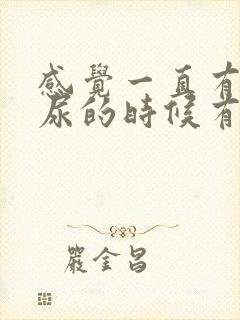 感覺一直有
尿的時候有
嚴金昌